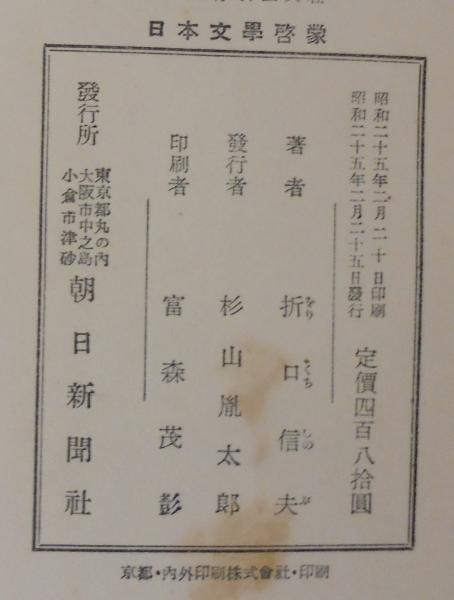 日本文學啓蒙
昭和二十五年二月二十日印刷
昭和二十五年二月二十五日發行
定價四百八拾圓
著者 折口信夫
をり くち しの ぶ
發行者 杉山胤太郎
印刷者 富森茂彭
發行所
東京都丸の內
大阪市中之島
小倉市津砂
朝日新聞社
京都・內外印刷株式會社・印刷